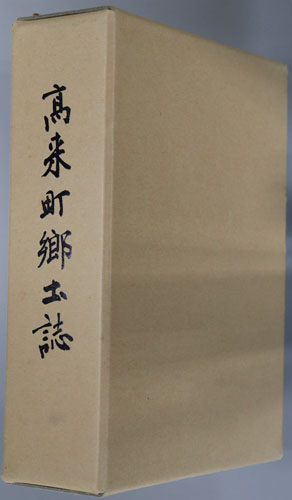 高来町郷土誌